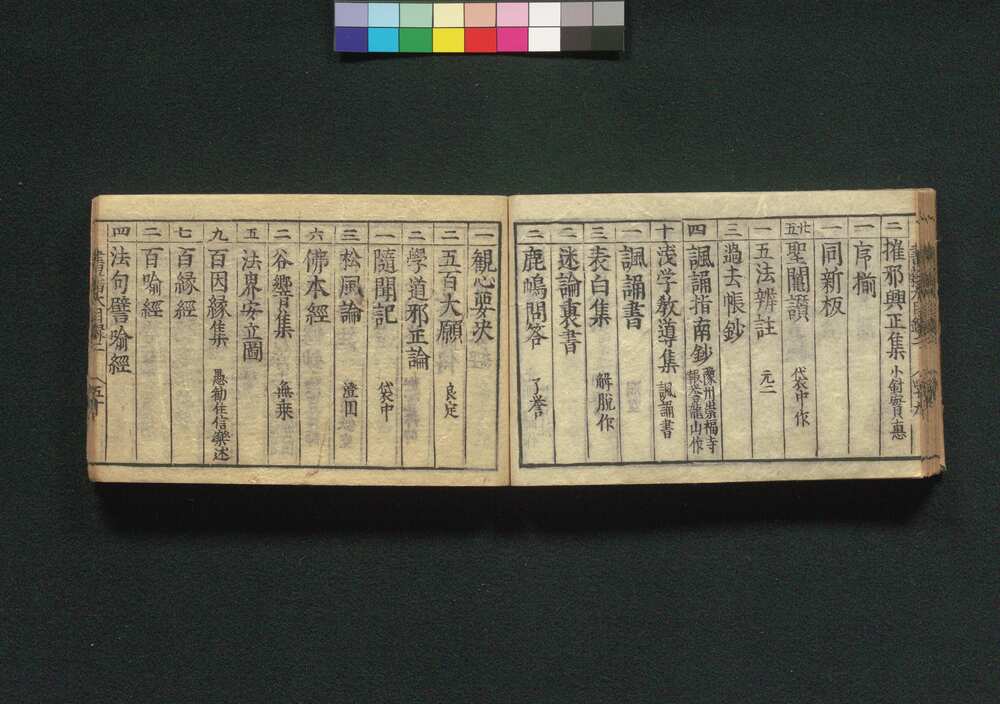 二 摧邪興正集 小釙實惠
一 序揃
一 同新板
五 聖閫讃 袋中作
一 五法辨註 元二
三 過去帳鈔
四 諷誦指南鈔 豫州崇福寺龍山作
十 浅学教導集 諷誦書
一 諷誦書
三 表白集 解脱作
二 迷論裏書
二 鹿嶋問答 了誉
一 観心要决
二 五百大願 良定
二 學道邪正論
一 隨聞記 袋中
三 松風論 澄圓
六 佛本經
二 谷響集 無乗
五 法界安立圖
九 百因縁集 愚勧住信樂述
七 百縁經
二 百喩經
四 法句譬喩經